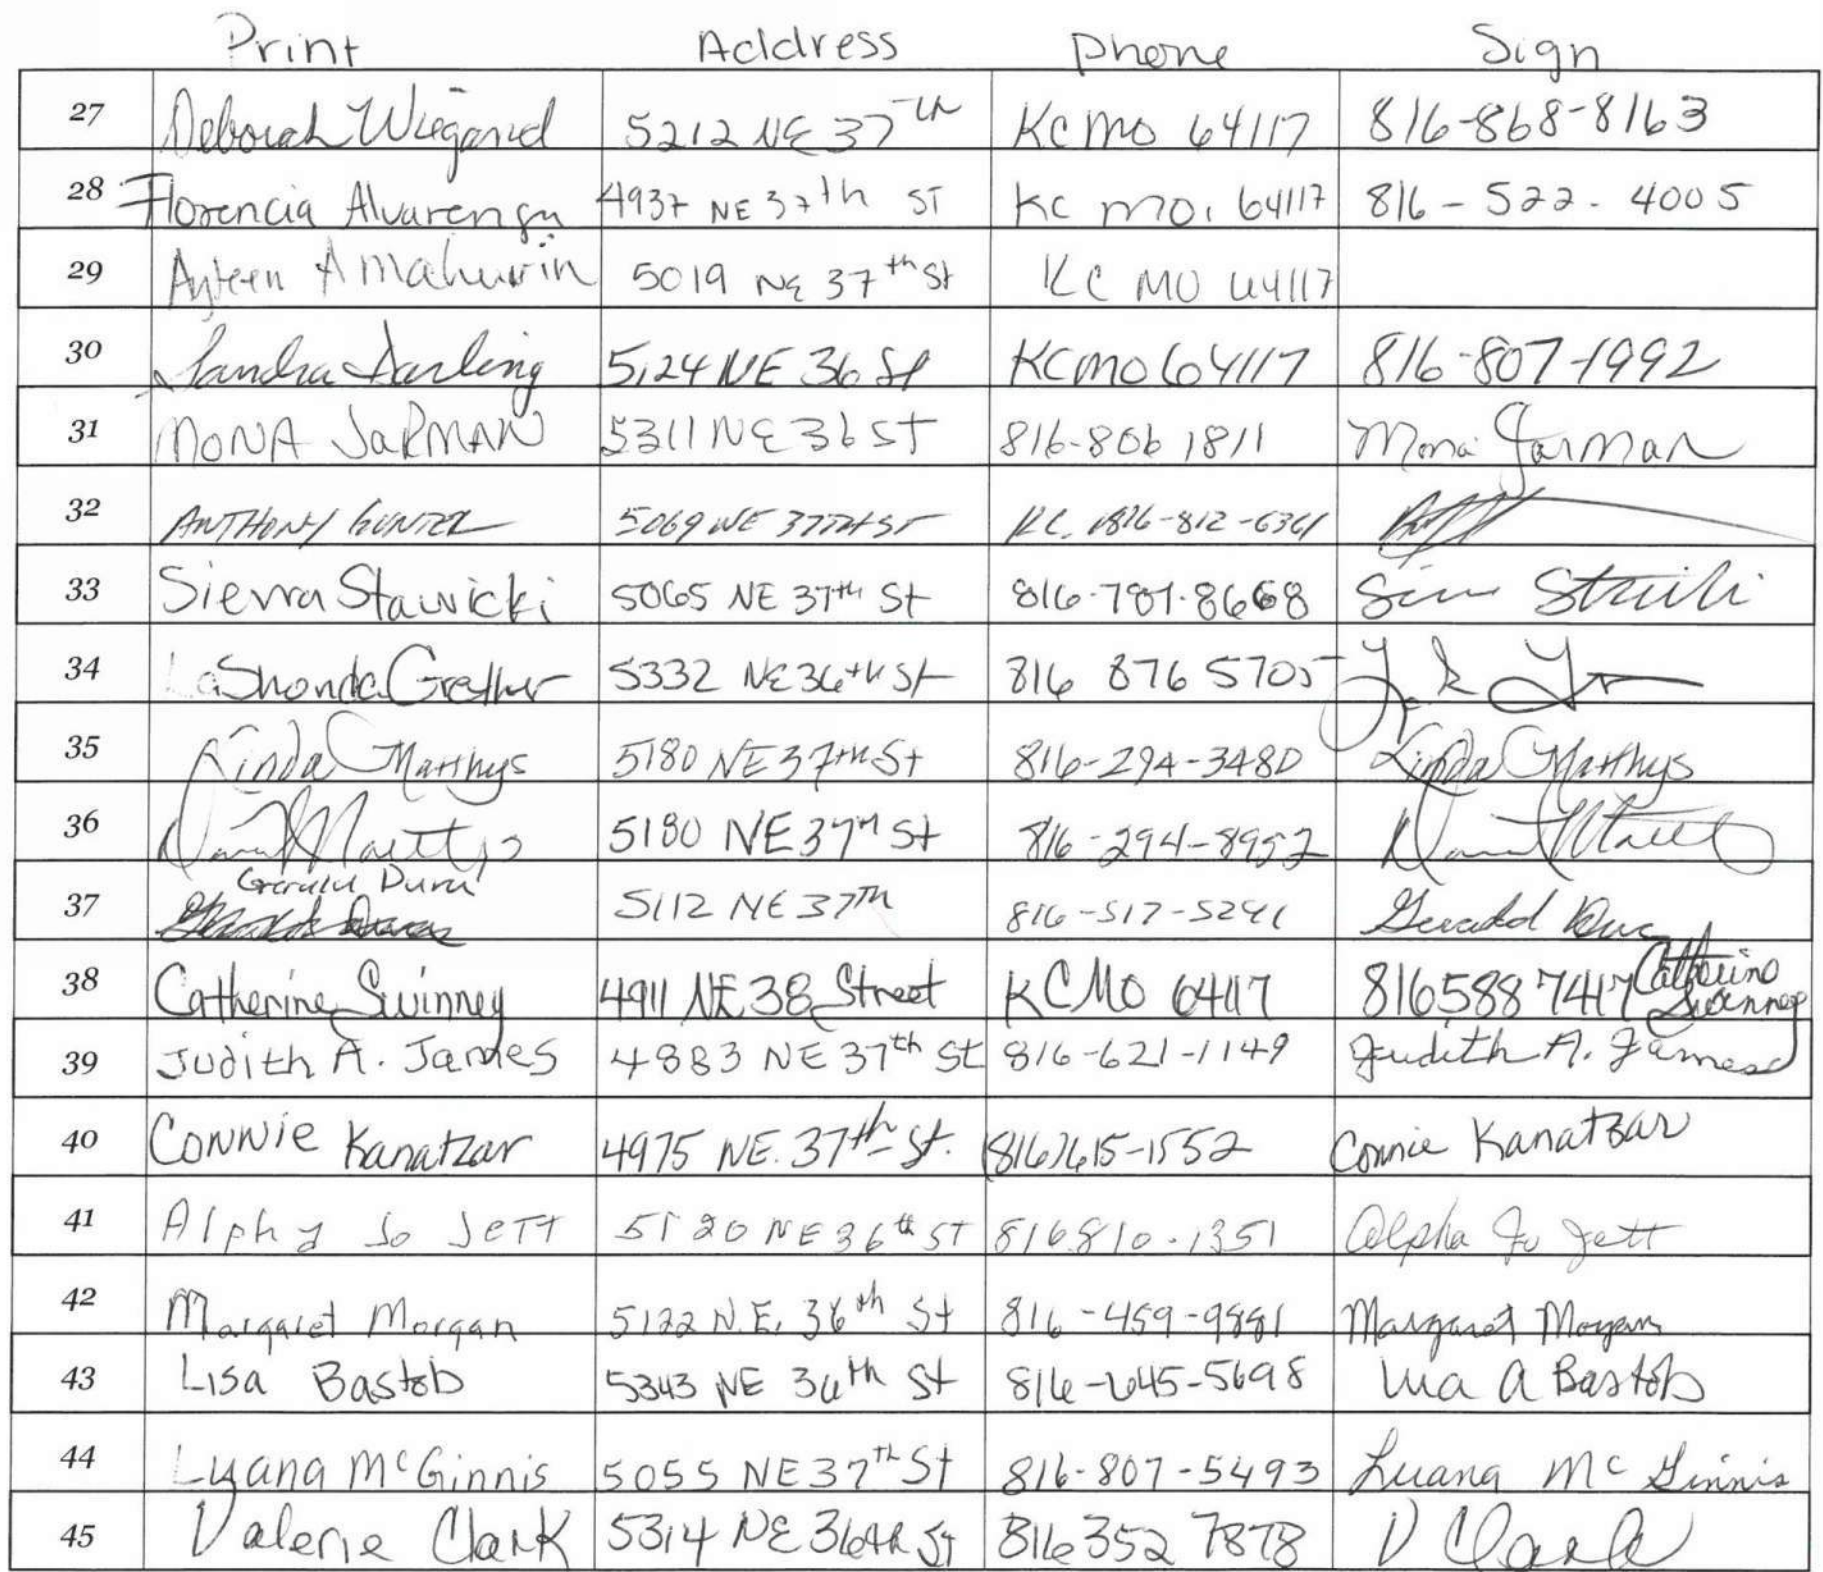 Print Address Phone Sign
27 Deborah Wiegand 5212 NE 37th KCMO 64117 816-868-8163
28 Florencia Alvarenga 4937 NE 37th ST KC MO. 64117 816-522-4005
29 Ayleen A Mahurin 5019 NE 37th St KC MO 64117
30 Sandra Darling 5124 NE 36 St KCMO 64117 816-807-1992
31 MONA JARMAN 5311 NE 36 ST 816-806 1811 Mona Jarman
32 ANTHONY GUNTER 5069 NE 37TH ST KC. 816-812-6361
33 Sierra Stawicki 5065 NE 37th St 816-781-8668
34 LaShonda Grether 5332 NE 36th St 816 876 5705
35 Linda Matthys 5180 NE 37th St 816-294-3480 Linda Matthys
36 5180 NE 37th St 816-294-8952
37 Gerald 5112 NE 37th 816-517-5241 Gerald
38 Catherine Swinney 4911 NE 38 Street KCMO 64117 816 588 7417 Catherine Swinney
39 Judith A. James 4883 NE 37th St 816-621-1149 Judith A. James
40 Connie Kanatzar 4975 NE. 37th St. (816) 615-1552 Connie Kanatzar
41 Alpha Jo Jett 5120 NE 36th ST 816 810-1351 Alpha Jo Jett
42 Margaret Morgan 5122 N.E. 36th St 816-459-9881 Margaret Morgan
43 Lisa Bastob 5343 NE 36th St 816-645-5698 Lisa A Bastob
44 Luana McGinnis 5055 NE 37th St 816-807-5493 Luana McGinnis
45 Valerie Clark 5314 NE 36th St 816 352 7878 V Clark